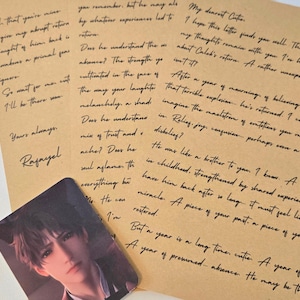 that you're mine
your abrupt return
thought of him back
a primal fear
So wait for me
I'll be there soon
Yours always,
Rafayel
you remember. but he may als
by whatever experiences led to
return.
Does he understand the
absence? The strength yo
cultivated in the face of
the way your laughter
melancholy, a shad
Does he understand
mix of trust and
ache? Does he
soul aflame
everything
He can
I'm
My dearest Cutie,
I hope this letter finds you well. The
my thoughts remain with you. I've h
about Caleb's return. A rather unexp
After a year of mourning, of believing
that terrible explosion, he's returned. I can
imagine the maelstrom of emotions you
in. Relief, joy, confusion, perhaps even a
disbelief?
He was like a brother to you, I know. A
in childhood, strengthened by shared experien
have him back after so long, it must feel li
miracle. A piece of your past, a piece of you
restored.
But a year is a long time, cutie. A year of
A year of presumed absence. He may be t